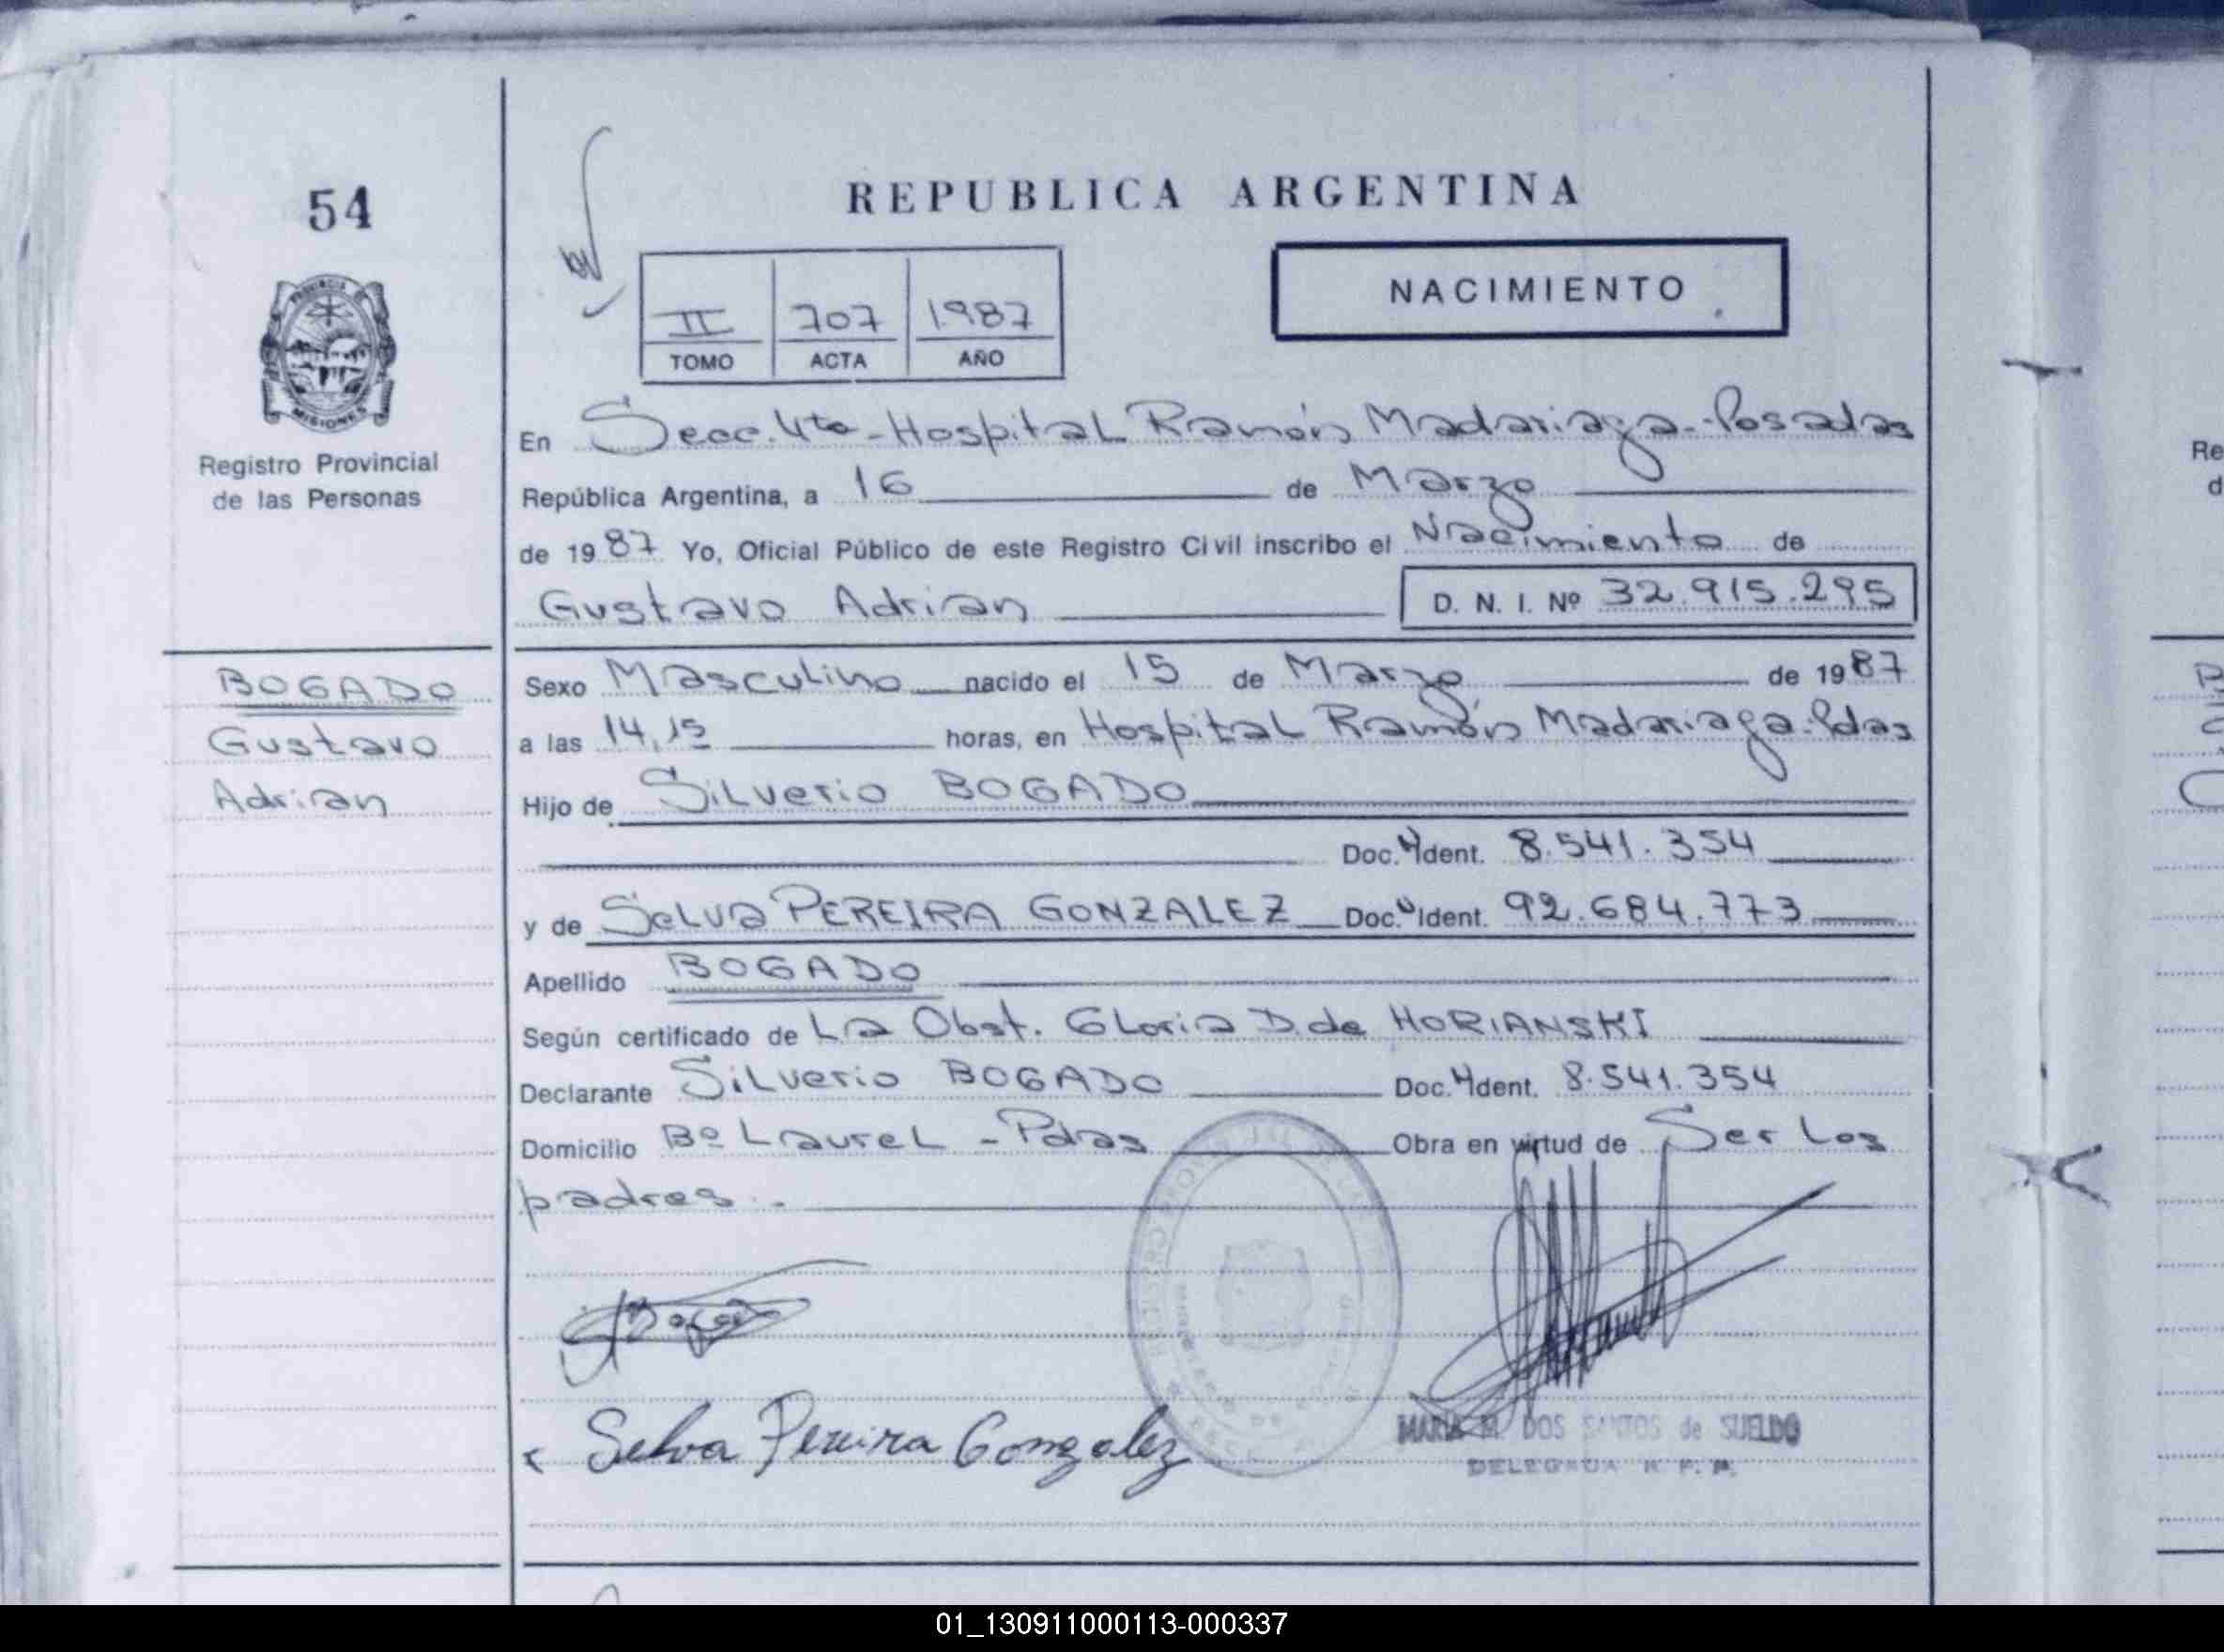 54
PROVINCIA DE
MISIONES
Registro Provincial
de las Personas
BOGADO
Gustavo
Adrian
REPUBLICA ARGENTINA
NACIMIENTO
II 707 1987
TOMO ACTA AÑO
En Secc. 4ta - Hospital Ramón Madariaga - Posadas
República Argentina, a 16 de Marzo
de 1987 Yo, Oficial Público de este Registro Civil inscribo el Nacimiento de
Gustavo Adrian D. N. I. Nº 32.915.295
Sexo Masculino nacido el 15 de Marzo de 1987
a las 14,15 horas, en Hospital Ramón Madariaga - Pdas
Hijo de Silverio BOGADO
Doc. Ident. 8.541.354
y de Selva PEREIRA GONZALEZ Doc. Ident. 92.684.773
Apellido BOGADO
Según certificado de La Obst. Gloria D. de HORIANSKI
Declarante Silverio BOGADO Doc. Ident. 8.541.354
Domicilio Bº Laurel - Pdas Obra en virtud de Ser los
padres.-
Selva Pereira Gonzalez
MARIA M. DOS SANTOS de SUELDO
DELEGADA R. P. P.
Re
d
01_130911000113-000337